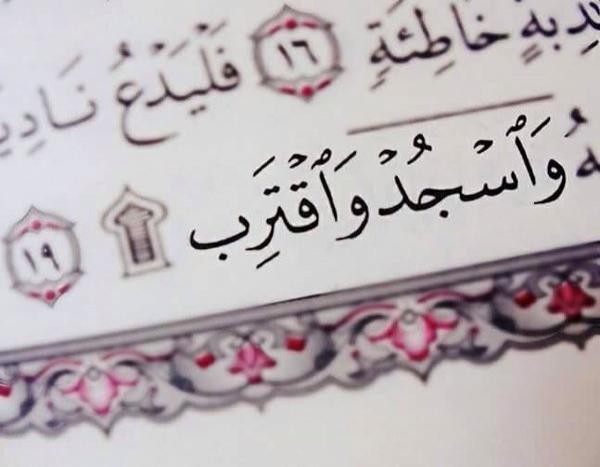 كَٰذِبَةٍ خَاطِئَةٍ ١٦ فَلْيَدْعُ نَادِيَ
وَٱسْجُدْ وَٱقْتَرِب ۩ ١٩